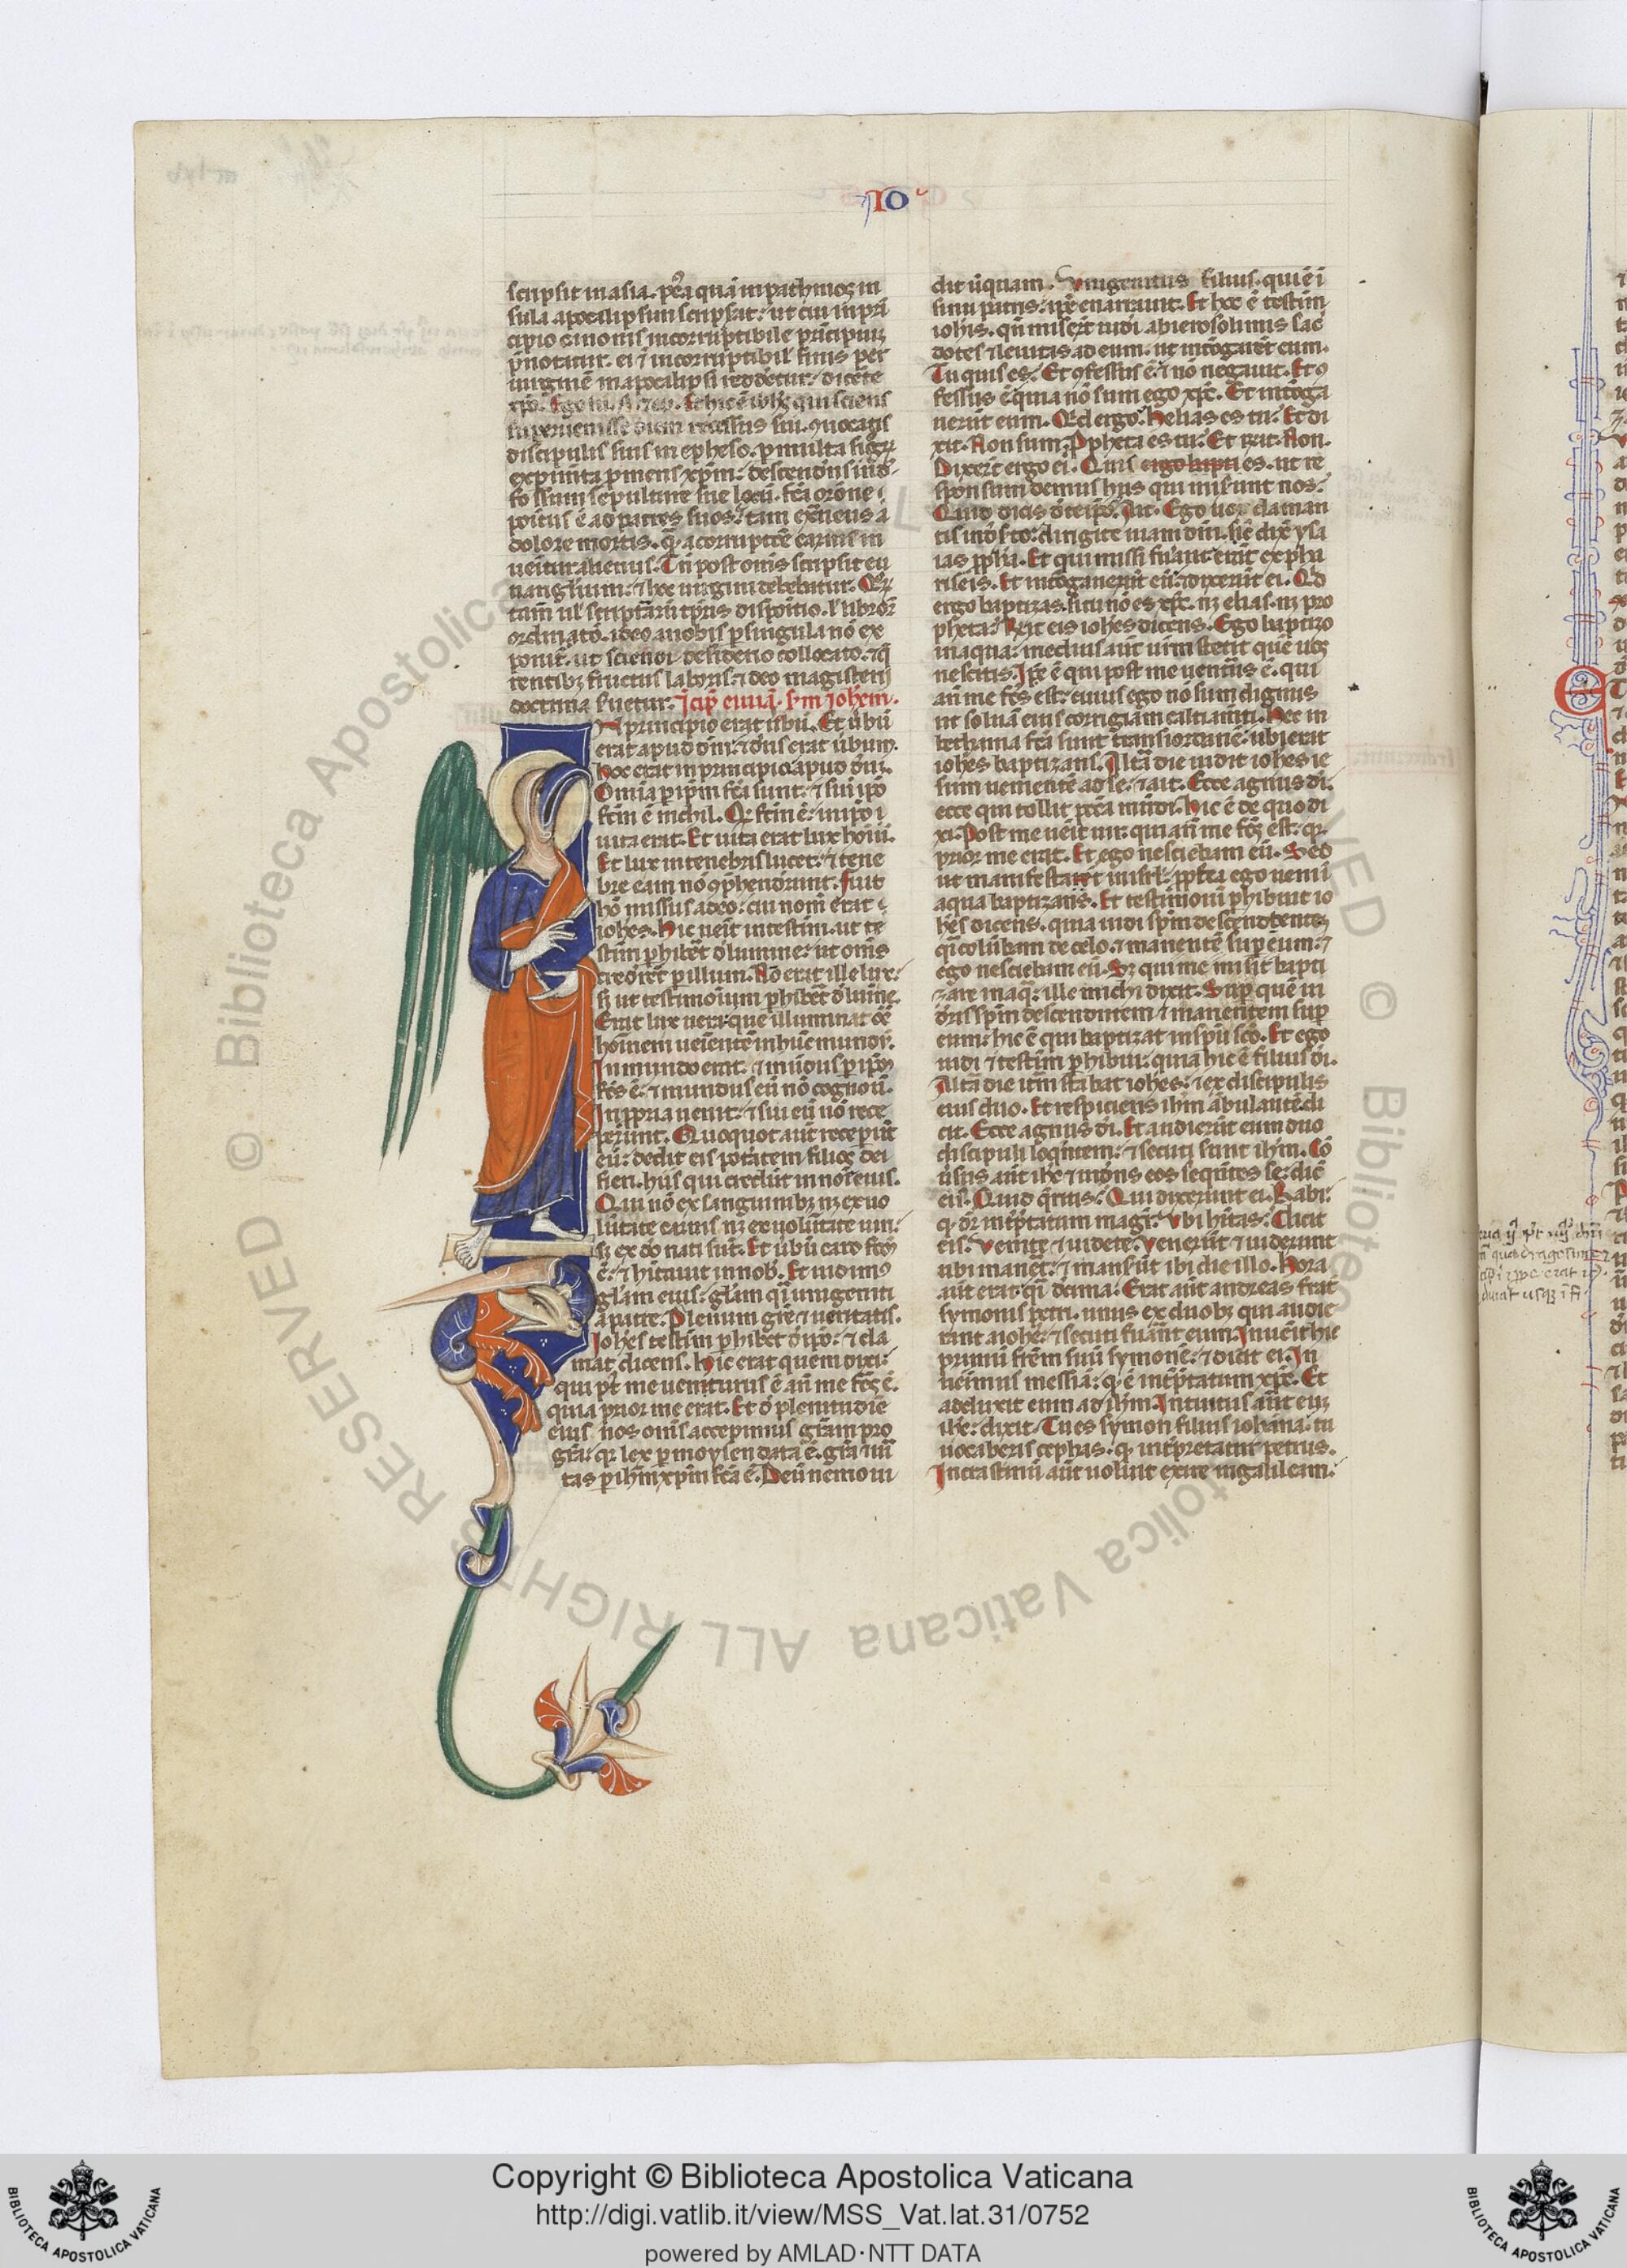 IO
scripsit in asia. p̄ea quā in pathmos in
sula apocalipsim scripserat: ut cui in pri
cipio canonis incorruptibile principiū
p̄notatur. ei ⁊ incorruptibil' finis per
uirginē in apocalipsi redderetur: dicēte
xp̄o. Ego sū .A. ⁊ ω. Et hic ē ioh̄s qui sciens
superuenisse diem recessus sui. ɔuocatis
discipulis suis in epheso. p̄ multa signoꝝ
experimēta ꝓmens xp̄m: descendens in de
fossum sepulture sue locū. fc̄a orōne
positus ē ad patres suos: tam ext̄neus a
dolore mortis. qͣ̄ a corruptōe carnis in
uenitur alienus. Tn̄ post om̄s scripsit eu
uangelium: ⁊ hoc uirgini debebatur. Quoꝝ
tam̄ uł scripturaꝝ tp̄ris dispositio. ł libroꝝ
ordinatō. ideo a nobis ꝑ singula nō ex
ponit̄. ut sciendi desiderio collocato. ⁊ q̄
rentibꝫ fructus laboris. ⁊ deo magisterii
doctrina s̄uetur. Icip̄ euuā. s̄m Ioh̄em.
IN principio erat ūbū. Et ūbū
erat apud dm̄. ⁊ ds̄ erat ūbum.
hoc erat in principio apud dm̄.
Omia ꝑ ip̄m fc̄a sunt: ⁊ sin̄ ip̄o
fc̄m ē nichil. Qꝫ fc̄m ē: in ip̄o
uita erat. Et uita erat lux hoīm.
Et lux in tenebris lucet: ⁊ tene
bre eam nō ɔp̄henderunt. Fuit
hō missus a deo: cui nom̄ erat
ioh̄es. Hic uenit in testim̄. ut te
stim̄ ꝑhibet̄ d̄ lumine: ut om̄s
crederēt ꝑ illum. Nō erat ille lux:
sꝫ ut testimonium ꝑhibet̄ d̄ lumīe.
Erat lux uera. que illuminat oēm
hominem ueniētē in hūc mundū.
In mundo erat: ⁊ mūdus ꝑ ip̄m
fc̄s ē: ⁊ mundus eū nō cognouit.
In ꝓpria uenit: ⁊ sui eū nō rece
perunt. Quotquot aūt recepūt
eū: dedit eis potatem filios dei
fieri. hiis qui credūt in nōie eius.
Qui nō ex sanguinibꝫ nꝫ ex uo
lūtate carnis nꝫ ex uolūtate uiri:
sꝫ ex dō nati sūt. Et ūbū caro fcm̄
ē: ⁊ hītauit in nob̄. Et uidim⁹
gl̄am eius: gl̄am qͣ̄i unigeniti
a patre. Plenum gr̄e ⁊ ueritatis.
Ioh̄es testim̄ ꝑhibet d̄ ip̄o: ⁊ cla
mat dicens. Hic erat quem dixi:
qui p̄t me uenturus ē an̄ me fc̄s ē.
quia prior me erat. Et d̄ plenitudīe
eius nos om̄s accepimus gr̄am pro
gr̄a. qͣ lex ꝑ moysen data ē. gr̄a ⁊ uī
tas ꝑ ih̄m xp̄m fc̄a ē. Deū nemo ui
dit ūquam. Unigenitus filius. qui ē i
sinu patris: ip̄e enarrauit. Et hoc ē testim̄
ioh̄is. qn̄ miserūt iudei ab ierosolimis sac̄
dotes ⁊ leuitas ad eum. ut int̄rogarēt eum.
Tu quis es. Et ɔfessus ē: ⁊ nō negauit. Et ɔ
fessus ē: quia nō sum ego xp̄c. Et int̄roga
uerūt eum. Qd ergo. Helias es tu: Et di
xit. Non sum. Ꝓpheta es tu: Et r̄nit. Non.
Dixerūt ergo ei. Quis ergo bapti es. ut re
sponsum demus hiis qui miserunt nos:
Quid dicis d̄ teip̄o: Ait. Ego uox claman
tis in d̄s̄to: dirigite uiam dn̄i. sic̄ dix̄ ysa
ias ꝓph̄a. Et qui missi fuerant: erāt ex pha
riseis. Et int̄rogauerūt eū: ⁊ dixerūt ei. Qd
ergo baptizas. si tu nō es xp̄c. nꝫ elias. nꝫ pro
pheta: R̄nit eis ioh̄es dicens. Ego baptizo
in aqua: medius aūt ur̄m stetit quē uos
nescitis. Ip̄e ē qui post me uenturus ē. qui
an̄ me fc̄s est: cuius ego nō sum dignus
ut soluā eius corrigiam calciamēti. Hec in
bethania fc̄a sunt transiordanē: ubi erat
ioh̄es baptizans. Altā die uidit ioh̄es ie
sum uenientē ad se: ⁊ ait. Ecce agnus di.
ecce qui tollit pcc̄a mūdi. hic ē de quo di
xi. Post me uenit uir: qui an̄ me fc̄s est: qͣ
prior me erat. Et ego nesciebam eū. Sed
ut manifestaret̄ in isr̄l: ꝓpt̄ea ego ueni ī
aqua baptizans. Et testimoniū ꝑhibuit io
h̄es dicens. quia uidi sp̄m descendentem
qͣ̄i colūbam de celo. ⁊ manentē sup̄ eum: ⁊
ego nesciebam eū. Sꝫ qui me misit bapti
zare in aqͣ: ille michi dixit. Sup̄ quē ui
deris sp̄m descendentem ⁊ manentem sup̄
eum: hic ē qui baptizat in sp̄u sc̄o. Et ego
uidi ⁊ testim̄ ꝑhibui: quia hic ē filius di.
Altā die itm̄ stabat ioh̄es: ⁊ ex discipulis
eius duo. Et respiciens ih̄m ābulantē: di
cit. Ecce agnus di. Et audierūt eum duo
discipuli loqūtem: ⁊ secuti sunt ih̄m. Cō
ūsus aūt ih̄c ⁊ uidens eos sequētes se: dic̄
eis. Quid q̄ritis: Qui dixerunt ei. Rabi:
qͣ dr̄ int̄p̄tatum magr̄. Ubi hītas: Dicit
eis. Venite ⁊ uidete. Venerūt ⁊ uiderunt
ubi maneret: ⁊ manserūt ibi die illo. Hora
aūt erat qͣ̄i decima. Erat aūt andreas frat̄
symonis petri. unus ex duobꝫ qui audie
rant a ioh̄e: ⁊ secuti fuerant eum. Inuenit hic
primū fr̄em suū symonē: ⁊ dicit ei. In
uenimus messiā: qͣ ē int̄p̄tatum xp̄c. Et
adduxit eum ad ih̄m. Intuitus aūt eum
ih̄c: dixit. Tu es symon filius iohāna: tu
uocaberis cephas. qͣ int̄pretatur petrus.
In crastinū aūt uoluit exire in galileam:
© Biblioteca Apostolica Vaticana ALL RIGHTS RESERVED
Copyright © Biblioteca Apostolica Vaticana
http://digi.vatlib.it/view/MSS_Vat.lat.31/0752
powered by AMLAD·NTT DATA
BIBLIOTECA APOSTOLICA VATICANA
BIBLIOTECA APOSTOLICA VATICANA